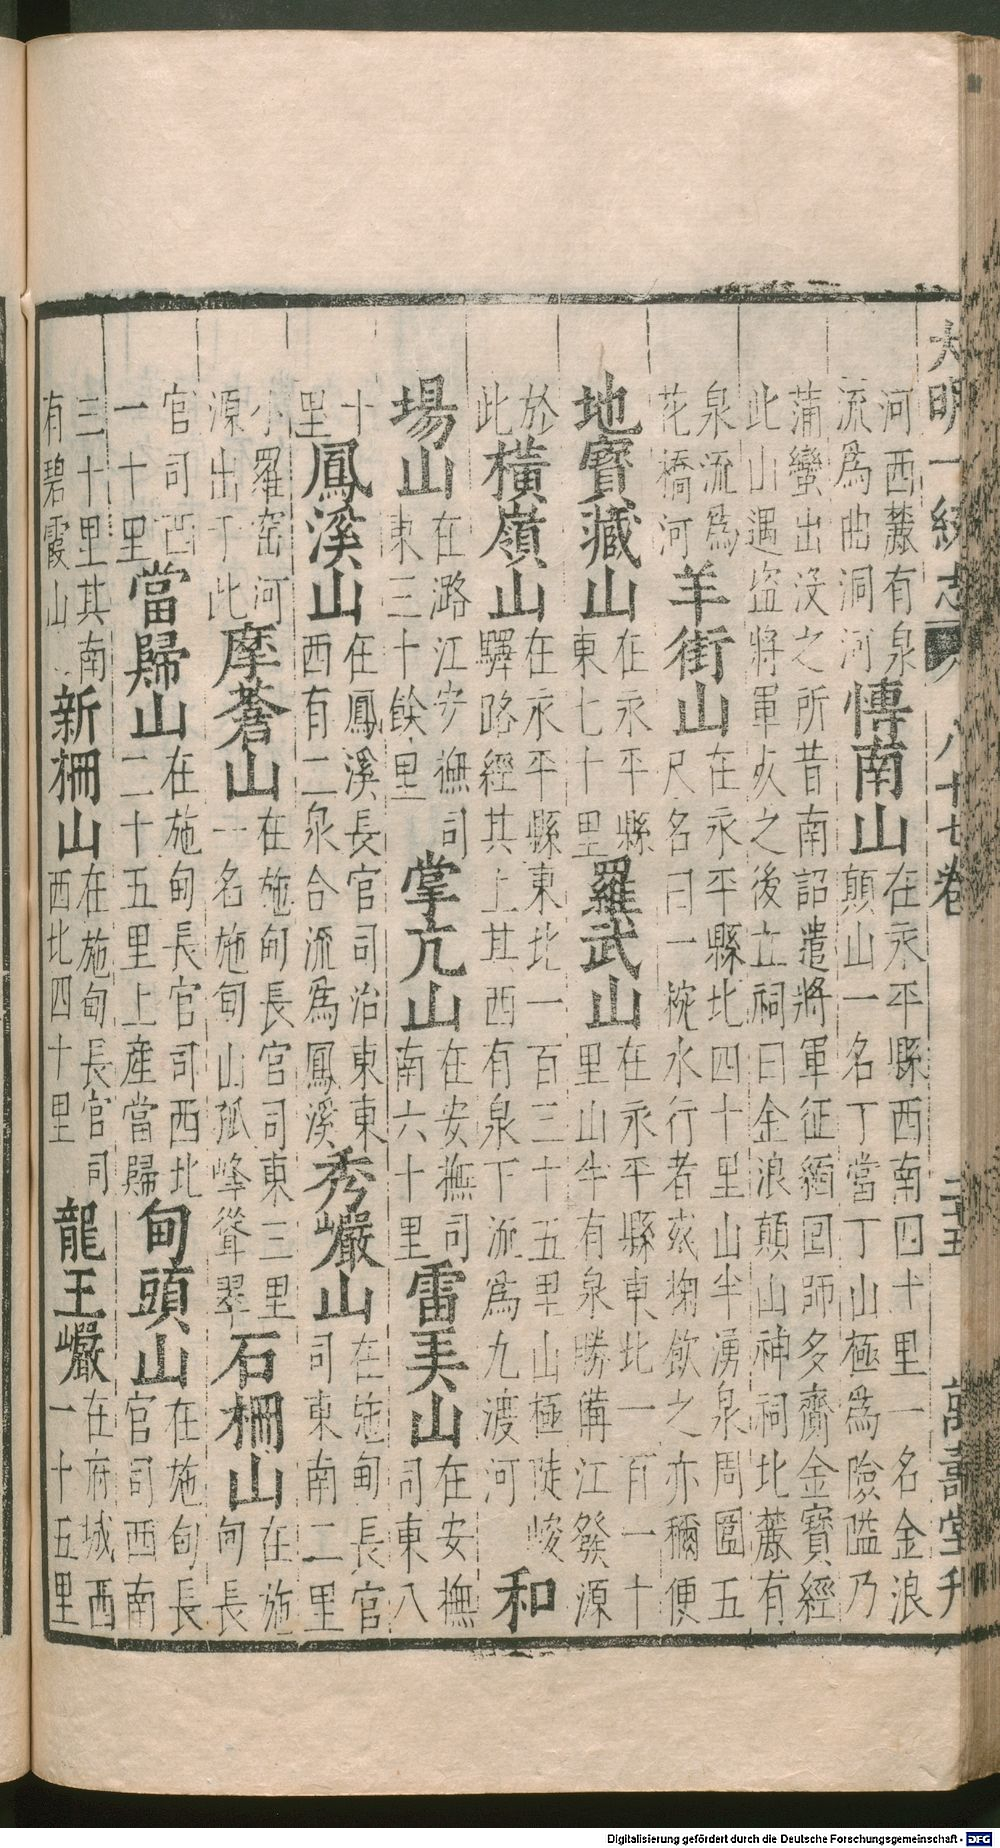 大明一統志 八十七卷 二十五 萬壽堂刋
河西麓有泉
流爲曲洞河
博南山
在永平縣西南四十里一名金浪
顛山一名丁當丁山極爲險隘乃
蒲蠻出沒之所昔南詔遣將軍征緬囬師多齎金寶經
此山遇盗將軍死之後立祠曰金浪顛山神祠北麓有
泉流爲
花橋河
羊街山
在永平縣北四十里山半湧泉周圍五
尺名曰一碗水行者衆掬飲之亦穪便
地寶藏山
在永平縣
東七十里
羅武山
在永平縣東北一百一十
里山半有泉勝備江發源
於
此
橫嶺山
在永平縣東北一百三十五里山極陡峻
驛路經其上其西有泉下流爲九渡河
和
場山
在潞江安撫司
東三十餘里
掌亢山
在安撫司
南六十里
雷美山
在安撫
司東八
十
里
鳳溪山
在鳳溪長官司治東東
西有二泉合流爲鳳溪
秀巖山
在施甸長官
司東南二里
小羅窑河
源出于此
摩蒼山
在施甸長官司東三里
一名施甸山孤峰聳翠
石柵山
在施
甸長
官司西
一十里
當歸山
在施甸長官司西北
二十五里上產當歸
甸頭山
在施甸長
官司西南
三十里其南
有碧霞山
新柵山
在施甸長官司
西北四十里
龍王巖
在府城西
一十五里
Digitalisierung gefördert durch die Deutsche Forschungsgemeinschaft - DFG